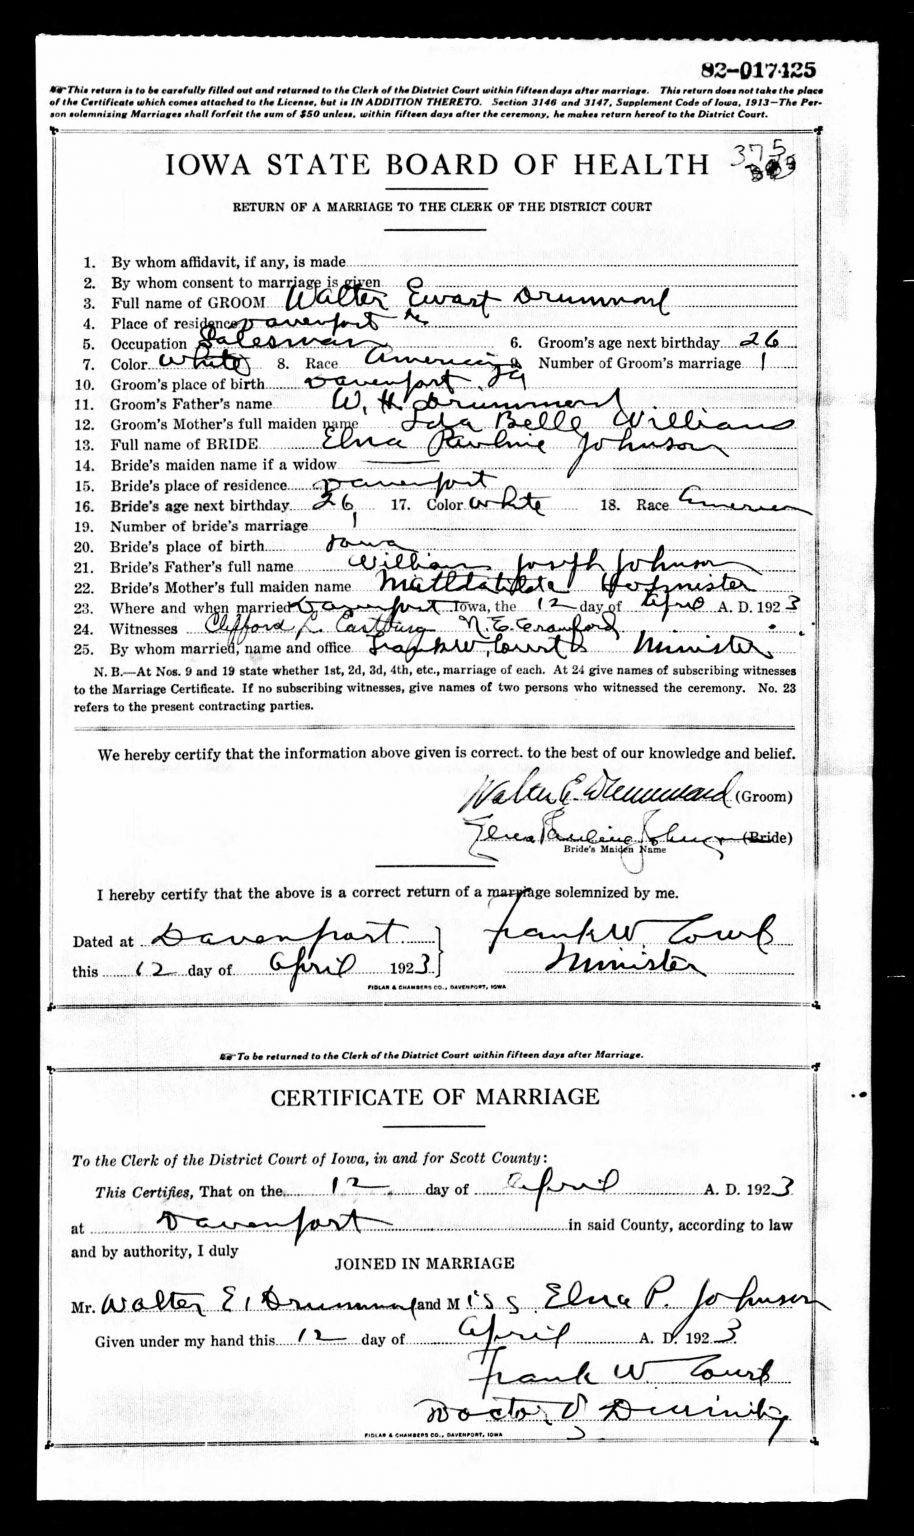 82-017425
This return is to be carefully filled out and returned to the Clerk of the District Court within fifteen days after marriage. This return does not take the place
of the Certificate which comes attached to the License, but is IN ADDITION THERETO. Section 3146 and 3147, Supplement Code of Iowa, 1913—The Per-
son solemnizing Marriages shall forfeit the sum of $50 unless, within fifteen days after the ceremony, he makes return hereof to the District Court.
IOWA STATE BOARD OF HEALTH 375
RETURN OF A MARRIAGE TO THE CLERK OF THE DISTRICT COURT
1. By whom affidavit, if any, is made
2. By whom consent to marriage is given
3. Full name of GROOM Walter Ewart Drummond
4. Place of residence Davenport Ia
5. Occupation Salesman 6. Groom's age next birthday 26
7. Color White 8. Race American 9. Number of Groom's marriage 1
10. Groom's place of birth Davenport, Ia
11. Groom's Father's name W. H. Drummond
12. Groom's Mother's full maiden name Ida Belle Williams
13. Full name of BRIDE Elna Pauline Johnson
14. Bride's maiden name if a widow
15. Bride's place of residence Davenport
16. Bride's age next birthday 26 17. Color White 18. Race American
19. Number of bride's marriage 1
20. Bride's place of birth Iowa
21. Bride's Father's full name William Joseph Johnson
22. Bride's Mother's full maiden name Hofmister
23. Where and when married Davenport Iowa, the 12 day of April A. D. 1923
24. Witnesses Clifford L. N. E. Crawford
25. By whom married, name and office Frank W. Court Minister
N. B.—At Nos. 9 and 19 state whether 1st, 2d, 3d, 4th, etc., marriage of each. At 24 give names of subscribing witnesses
to the Marriage Certificate. If no subscribing witnesses, give names of two persons who witnessed the ceremony. No. 23
refers to the present contracting parties.
We hereby certify that the information above given is correct. to the best of our knowledge and belief.
Walter E. Drummond (Groom)
Elna Pauline Johnson (Bride)
Bride's Maiden Name
I hereby certify that the above is a correct return of a marriage solemnized by me.
Dated at Davenport Frank W. Court
this 12 day of April 1923. Minister
FIDLAR & CHAMBERS CO., DAVENPORT, IOWA
To be returned to the Clerk of the District Court within fifteen days after Marriage.
CERTIFICATE OF MARRIAGE
To the Clerk of the District Court of Iowa, in and for Scott County:
This Certifies, That on the 12 day of April A. D. 1923
at Davenport in said County, according to law
and by authority, I duly
JOINED IN MARRIAGE
Mr. Walter E. Drummond and Miss Elna P. Johnson
Given under my hand this 12 day of April A. D. 1923
Frank W. Court
Doctor of Divinity
FIDLAR & CHAMBERS CO., DAVENPORT, IOWA